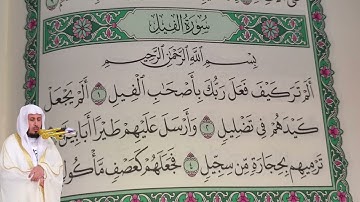 سُورَةُ الفِيلِ
بِسْمِ اللَّهِ الرَّحْمَٰنِ الرَّحِيمِ
أَلَمْ تَرَ كَيْفَ فَعَلَ رَبُّكَ بِأَصْحَابِ الْفِيلِ ١ أَلَمْ يَجْعَلْ
كَيْدَهُمْ فِي تَضْلِيلٍ ٢ وَأَرْسَلَ عَلَيْهِمْ طَيْرًا أَبَابِيلَ
تَرْمِيهِم بِحِجَارَةٍ مِّن سِجِّيلٍ ٤ فَجَعَلَهُمْ كَعَصْفٍ مَّأْكُولٍ